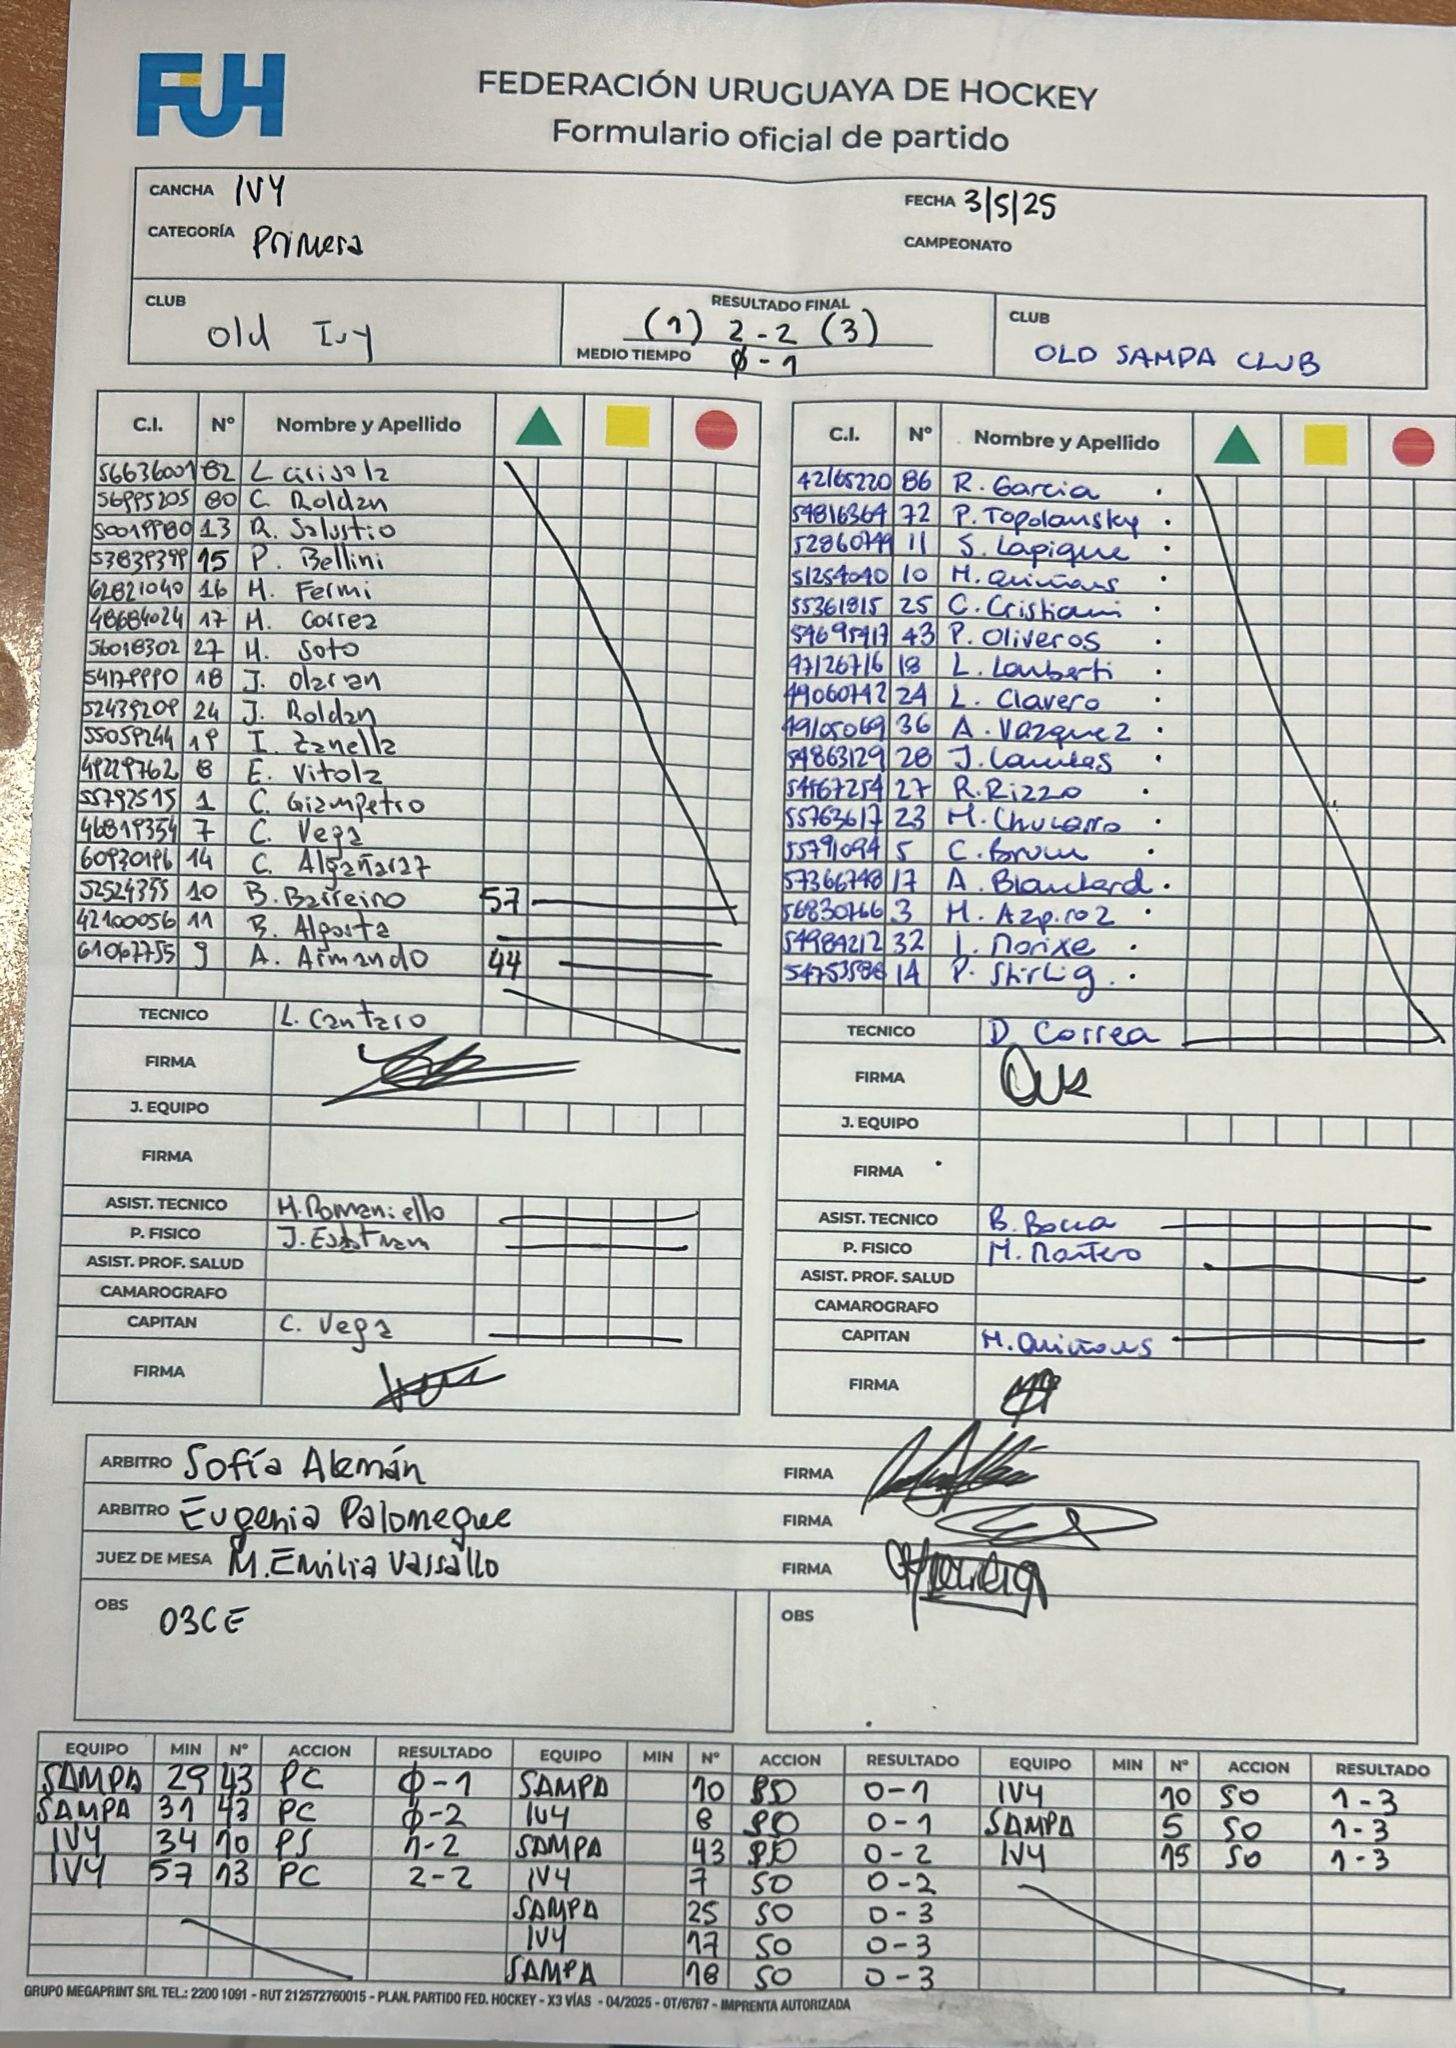 FUH
FEDERACIÓN URUGUAYA DE HOCKEY
Formulario oficial de partido
CANCHA IVY FECHA 3/5/25
CATEGORÍA Primera CAMPEONATO
CLUB Old Ivy
RESULTADO FINAL (1) 2-2 (3)
MEDIO TIEMPO 0-1
CLUB OLD SAMPA CLUB
C.I. N° Nombre y Apellido
56636001 82 L Grisola
56995205 80 C. Roldan
50019980 13 R. Salustio
53839399 15 P. Bellini
62821040 16 M. Fermi
48684024 17 M. Correa
56018302 27 M. Soto
54179990 18 J. Olaran
52439209 24 J. Roldan
55059244 19 I. Zanella
49229762 8 E. Vitola
55792515 1 C. Giampetro
46819354 7 C. Vega
60930196 14 C. Algañaraz
52524355 10 B. Barreiro 57
42100056 11 B. Algorta
61067755 9 A. Armando 44
TECNICO L. Cantaro
FIRMA
J. EQUIPO
FIRMA
ASIST. TECNICO M. Romaniello
P. FISICO
ASIST. PROF. SALUD
CAMAROGRAFO
CAPITAN C. Vega
FIRMA
C.I. N° Nombre y Apellido
42165220 86 R. Garcia
54816364 72 P. Topolansky
52860749 11 S. Lapique
51254040 10 M. Quiñons
55361815 25 C. Cristiani
54695417 43 P. Oliveros
47126716 18 L. Lamberti
49060742 24 L. Clavero
49105069 36 A. Vazquez
54863129 28 J. Lanutas
54567254 27 R. Rizzo
55763617 23 M. Chucarro
55791094 5 C. Brum
57366748 17 A. Blanchard
56830766 3 M. Azpiroz
54984212 32 I. Morixe
54753586 14 P. Stirling
TECNICO D. Correa
FIRMA
J. EQUIPO
FIRMA
ASIST. TECNICO B. Bocca
P. FISICO M. Mañero
ASIST. PROF. SALUD
CAMAROGRAFO
CAPITAN M. Quiñons
FIRMA
ARBITRO Sofía Alemán FIRMA
ARBITRO Eugenia Palomeque FIRMA
JUEZ DE MESA M. Emilia Vassallo FIRMA
OBS 03CE
OBS
EQUIPO MIN N° ACCION RESULTADO EQUIPO MIN N° ACCION RESULTADO EQUIPO MIN N° ACCION RESULTADO
SAMPA 29 43 PC 0-1 SAMPA 10 SO 0-1 IVY 10 SO 1-3
SAMPA 31 43 PC 0-2 IVY 8 SO 0-1 SAMPA 5 SO 1-3
IVY 34 10 PS 1-2 SAMPA 43 SO 0-2 IVY 15 SO 1-3
IVY 57 13 PC 2-2 IVY 7 SO 0-2
SAMPA 25 SO 0-3
IVY 17 SO 0-3
SAMPA 18 SO 0-3
GRUPO MEGAPRINT SRL TEL.: 2200 1091 - RUT 212572760015 - PLAN. PARTIDO FED. HOCKEY - X3 VÍAS - 04/2025 - OT/6767 - IMPRENTA AUTORIZADA